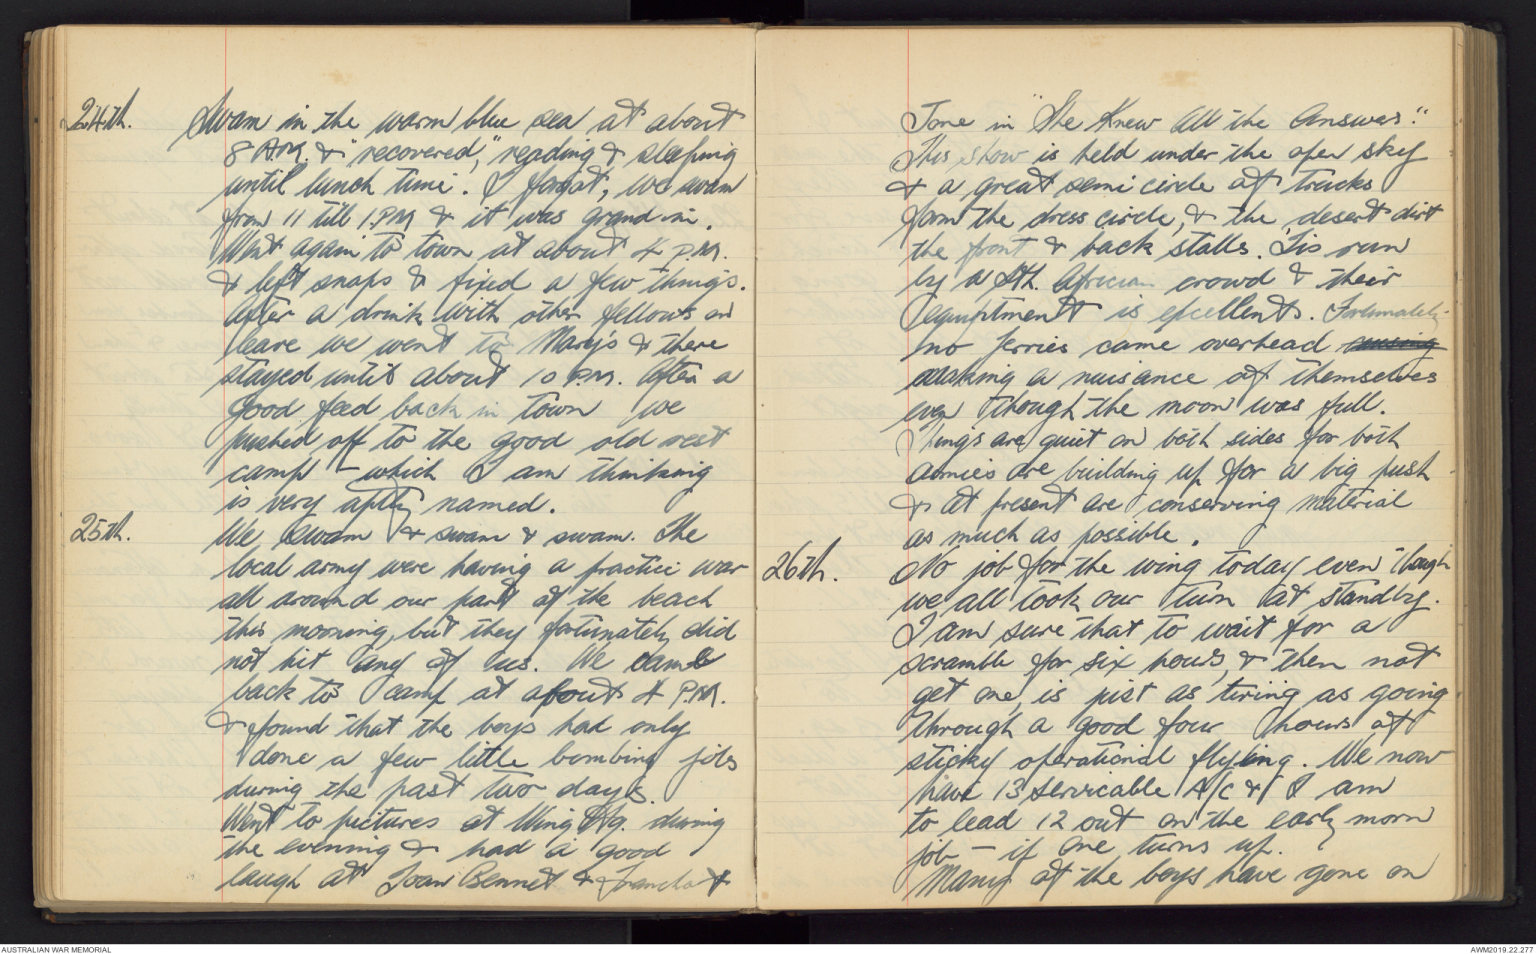 24th. Swam in the warm blue sea at about
8 A.M. & "recovered," reading & sleeping
until lunch time. I forgot, we swam
from 11 till 1.P.M & it was grand in.
Went again to town at about 4 P.M.
& left snaps & fixed a few things.
After a drink with other fellows on
leave we went to Mary's & there
stayed until about 10 P.M. After a
good feed back in town we
pushed off to the good old rest
camp - which I am thinking
is very aptly named.
25th. We swam & swam & swam. The
local army were having a practice war
all around our part of the beach
this morning, but they fortunately did
not hit any of us. We came
back to camp at about 4 P.M.
& found that the boys had only
done a few little bombing jobs
during the past two days.
Went to pictures at Wing Hq. during
the evening & had a good
laugh at Joan Bennet & Franchot
Tone in "She Knew All the Answers".
This show is held under the open sky
& a great semi circle of trucks
form the dress circle, & the desert dirt
the front & back stalls. Tis run
by a Sth. African crowd & their
equiptment is excellent. Fortunately
no Jerries came overhead causing
making a nuisance of themselves
even though the moon was full.
Things are quiet on both sides for both
armies are building up for a big push
& at present are conserving material
as much as possible.
26th. No job for the wing today even though
we all took our turn at standby.
I am sure that to wait for a
scramble for six hours, & then not
get one, is just as tiring as going
through a good four hours of
sticky operational flying. We now
have 13 servicable A/c & I am
to lead 12 out on the early morn
job - if one turns up.
Many of the boys have gone on
AUSTRALIAN WAR MEMORIAL
AWM2019.22.277